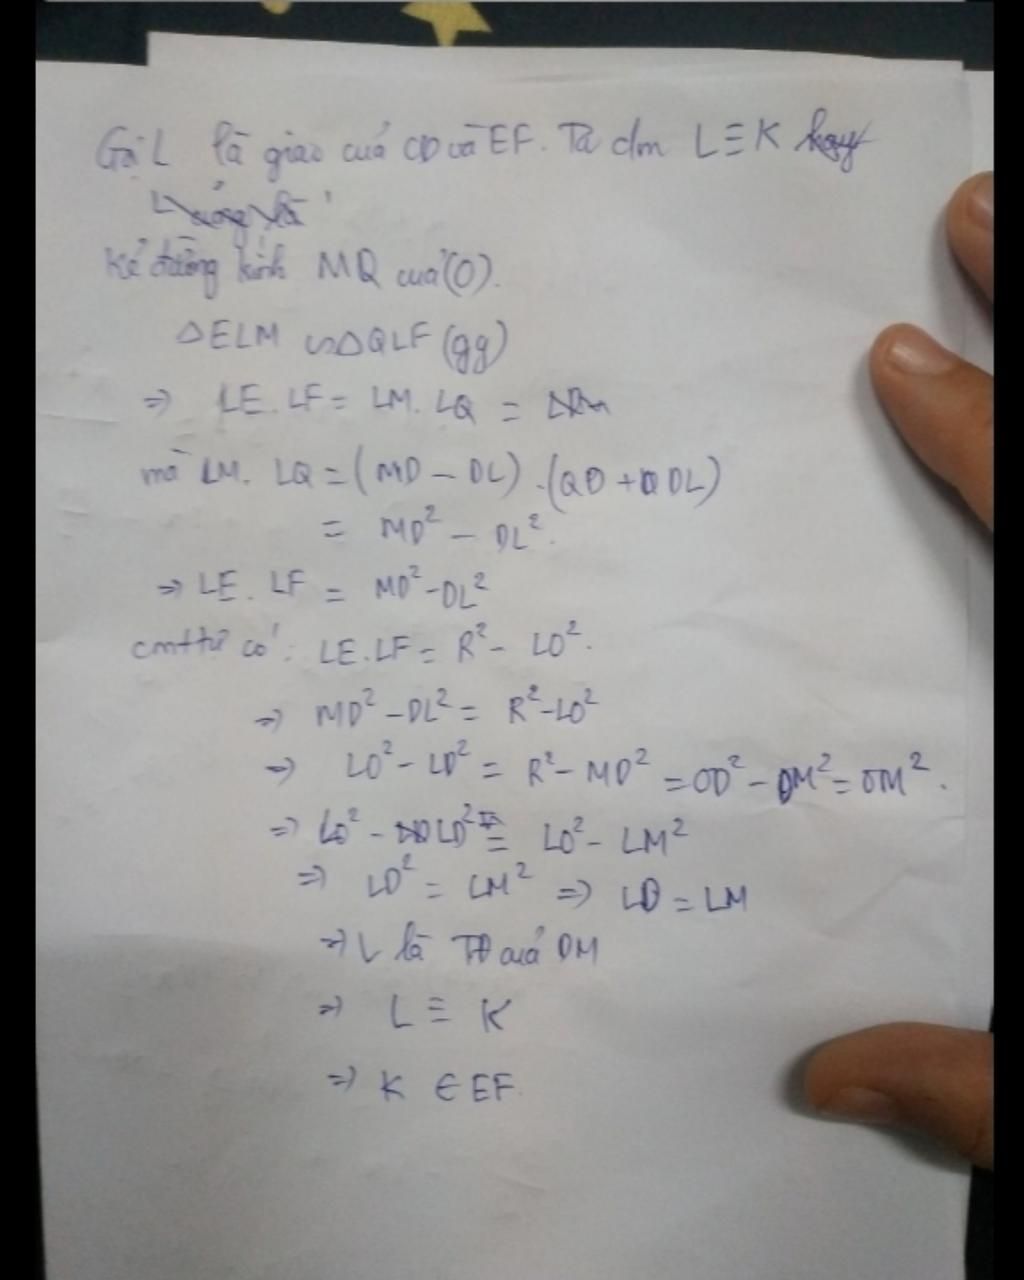 Gọi L là giao của CD và EF. Ta c/m L ≡ K hay
Kẻ đường kính MQ của (O).
△ELM ∽ △QLF (gg)
=> LE.LF = LM.LQ =
mà LM.LQ = (MD - DL).(QD + DL)
= MD² - DL².
=> LE.LF = MD² - DL²
cmttự có: LE.LF = R² - LO².
=> MD² - DL² = R² - LO²
=> LO² - LD² = R² - MD² = OD² - DM² = OM².
=> LO² - LD² = LO² - LM²
=> LD² = LM² => LD = LM
=> L là TĐ của DM
=> L ≡ K
=> K ∈ EF.